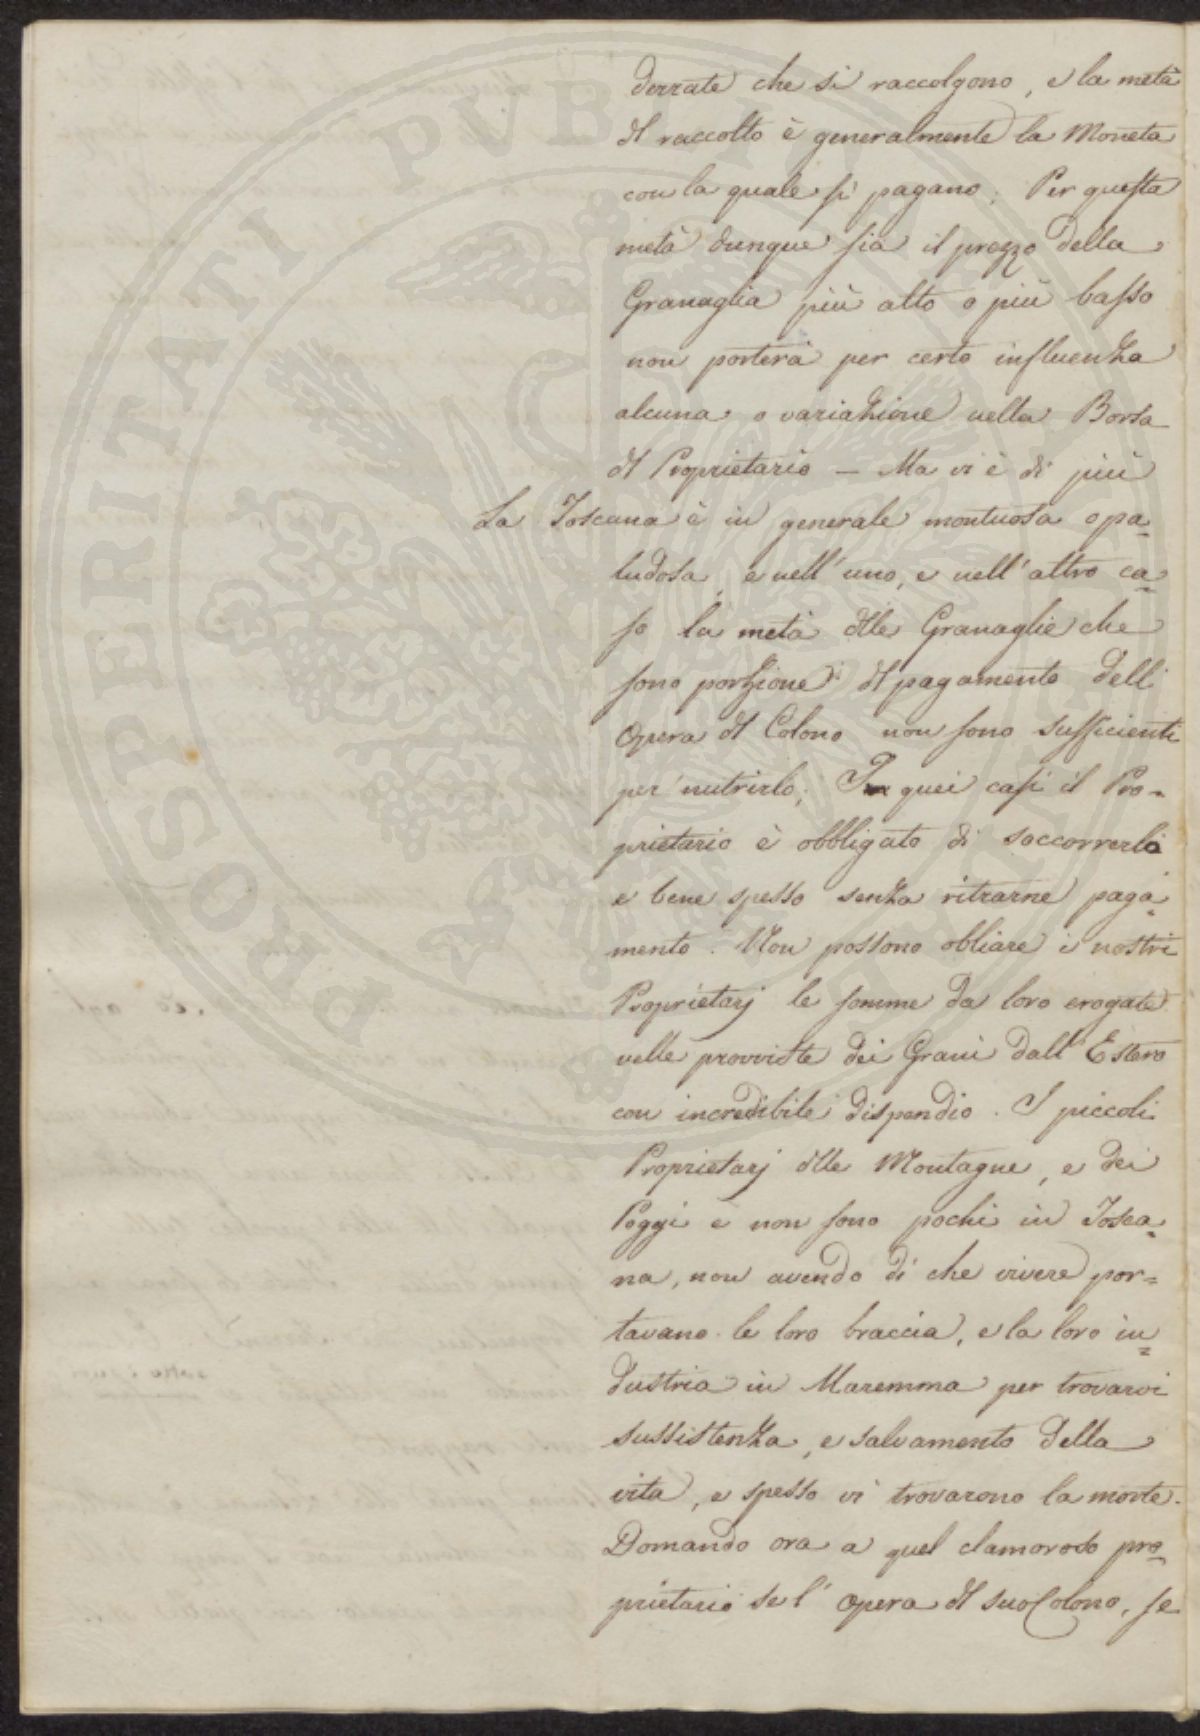 derrate che si raccolgono, e la metà
dl raccolto è generalmente la Moneta
con la quale si pagano; Per questa
metà dunque sia il prezzo della
Granaglia più alto o più basso
non porterà per certo influenza
alcuna o variazione nella Borsa
dl Proprietario — Ma vi è di più
La Toscana è in generale montuosa o pa=
ludosa, e nell'uno, e nell'altro ca=
so la metà dlle Granaglie che
sono porzione dl pagamento dell'
Opera dl Colono non sono sufficienti
per nutrirlo; In quei casi il Pro=
prietario è obbligato di soccorrerlo
e bene spesso senza ritrarne paga=
mento. Non possono obliare i nostri
Proprietarj le somme da loro erogate
nelle provviste dei Grani dall'Estero
con incredibile dispendio. I piccoli
Proprietarj dlle Montagne, e dei
Poggi e non sono pochi in Tosca=
na, non avendo di che vivere por=
tavano le loro braccia, e la loro in=
dustria in Maremma per trovarvi
sussistenza, e salvamento della
vita, e spesso vi trovarono la morte.
Domando ora a quel clamoroso pro=
prietario se l'opera dl suo Colono, se
PROSPERITATI PVBLICAE